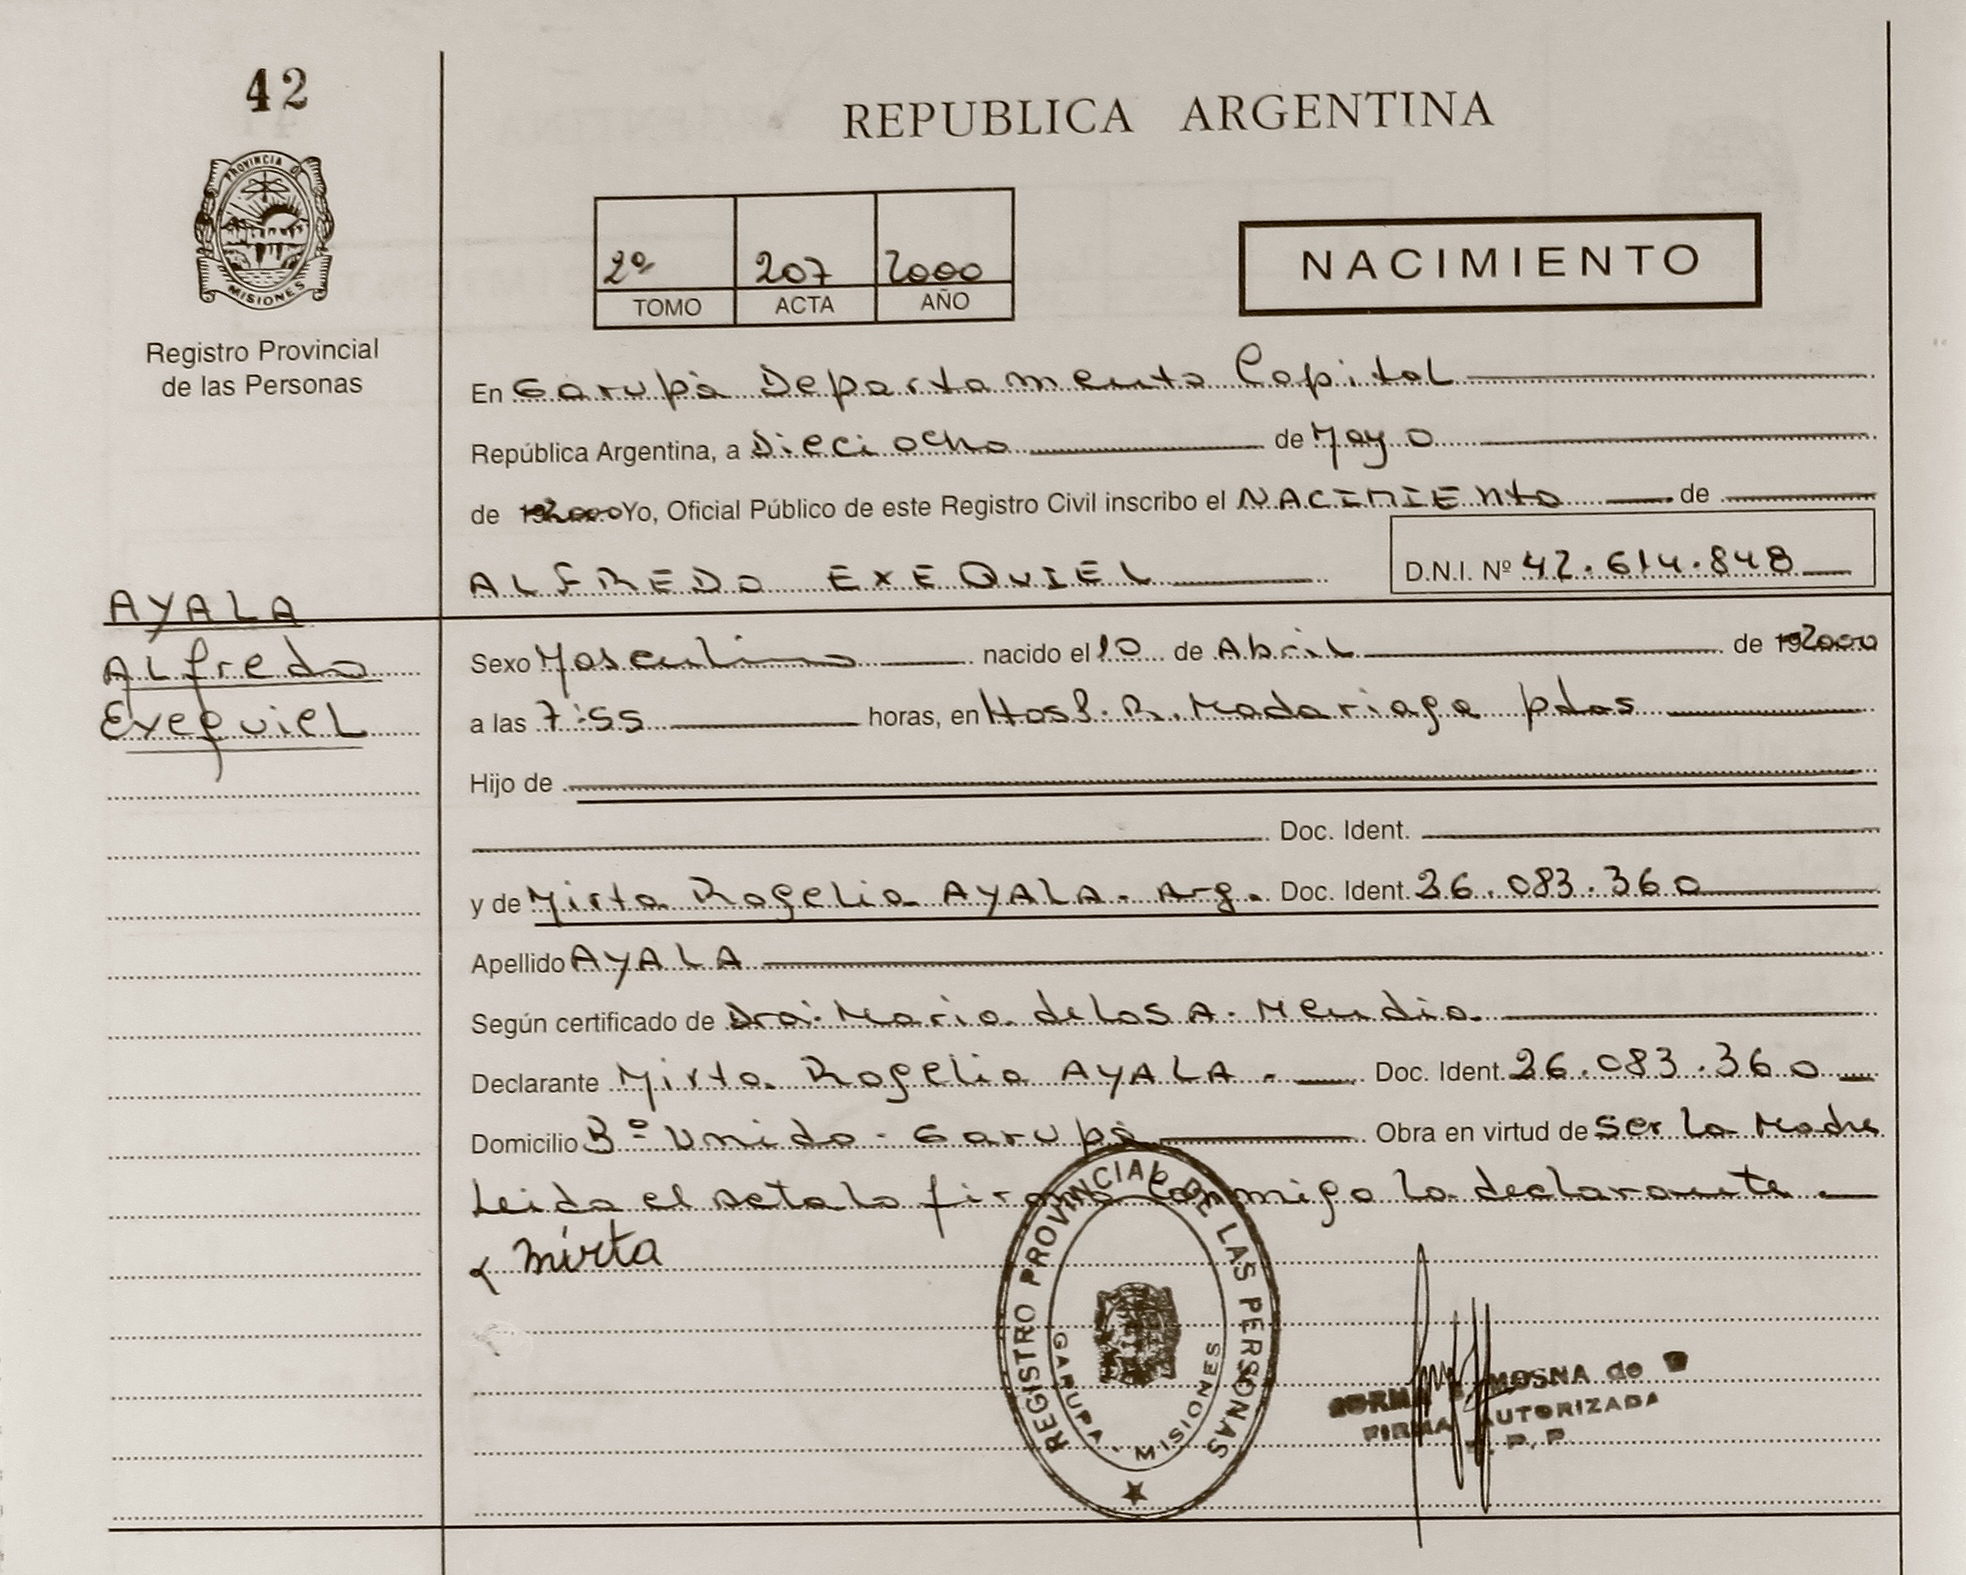 42
REPUBLICA ARGENTINA
PROVINCIA DE
MISIONES
Registro Provincial
de las Personas
2º 207 2000
TOMO ACTA AÑO
NACIMIENTO
En Garupá Departamento Capital
República Argentina, a Dieciocho de Mayo
de 192000 Yo, Oficial Público de este Registro Civil inscribo el NACIMIENTO de
ALFREDO EXEQUIEL D.N.I. Nº 42.614.848
AYALA
Alfredo
Exequiel
Sexo Masculino nacido el 10 de Abril de 192000
a las 7:55 horas, en Hosp. R. Madariaga pdas
Hijo de
Doc. Ident.
y de Mirta Rogelia AYALA - Arg. Doc. Ident. 26.083.360
Apellido AYALA
Según certificado de Dra. Maria de los A. Mendia
Declarante Mirta Rogelia AYALA - Doc. Ident. 26.083.360
Domicilio Bº Unido - Garupá Obra en virtud de Ser la Madre
Leida el acta la firma conmigo la declarante
Mirta
REGISTRO PROVINCIAL DE LAS PERSONAS
GARUPA - MISIONES
MOSNA de
FIRMA AUTORIZADA
R. P. P.